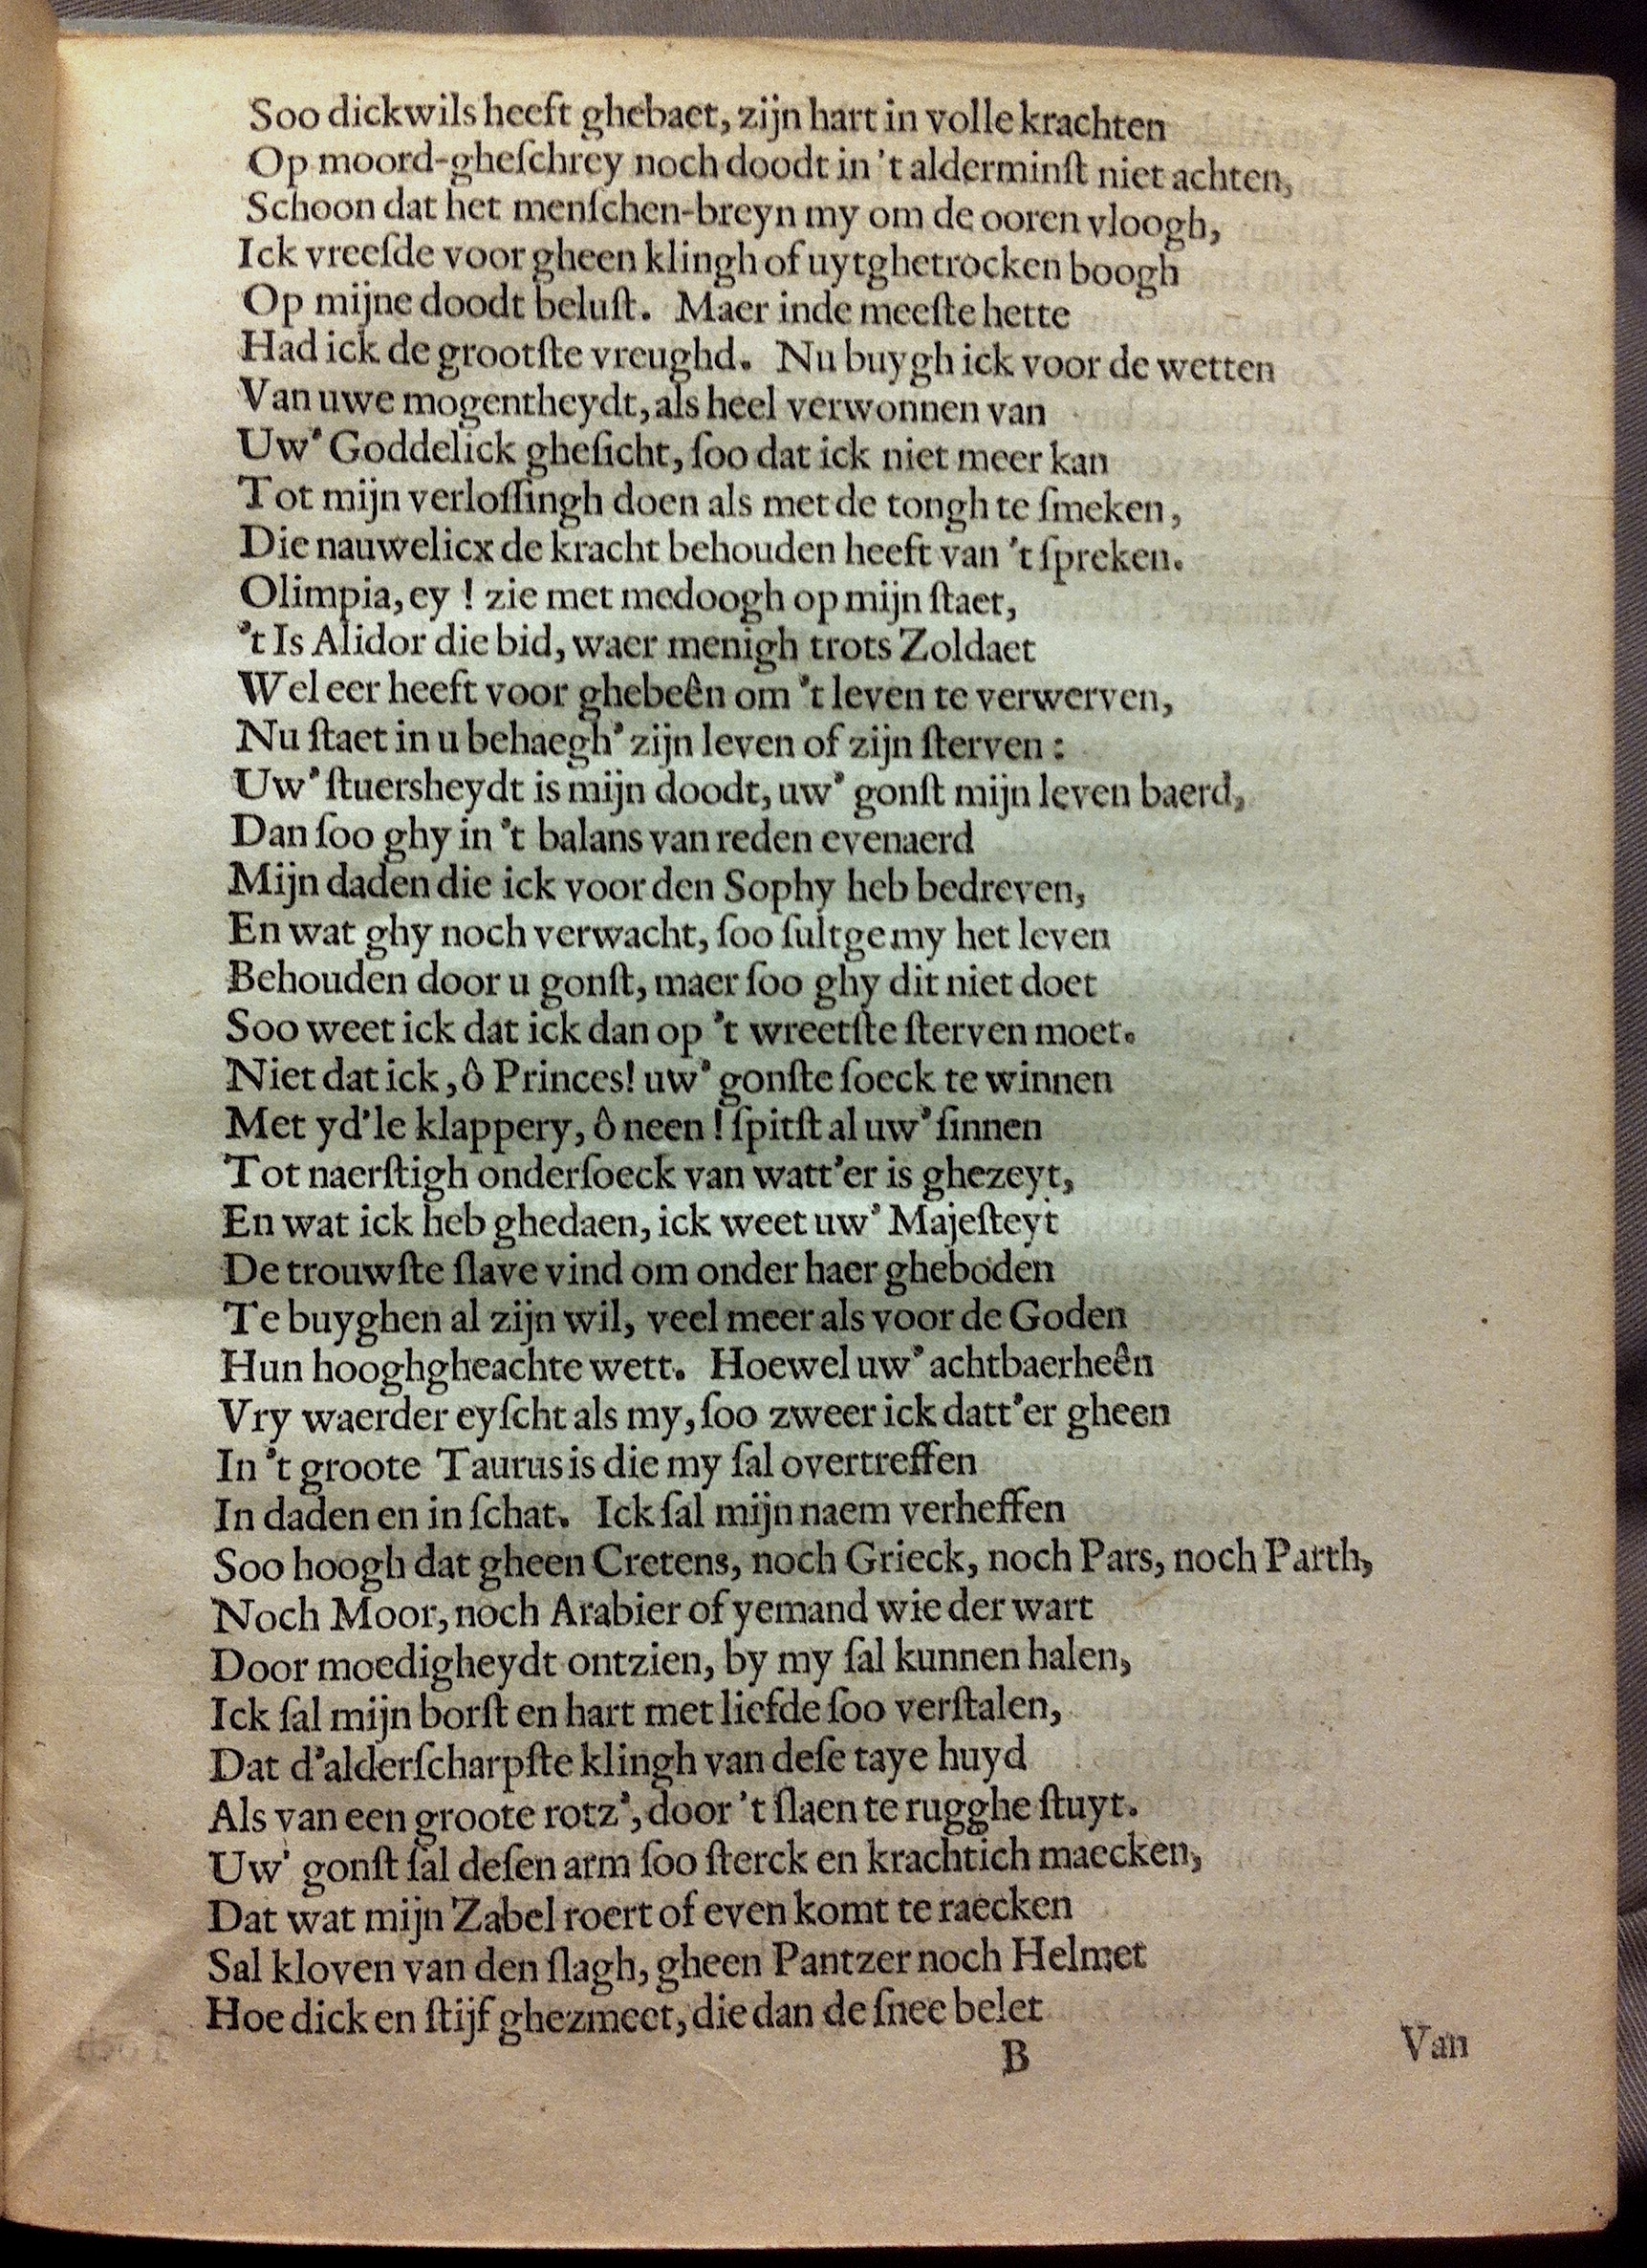 Soo dickwils heeft ghebaet, zijn hart in volle krachten
Op moord-gheſchrey noch doodt in 't alderminſt niet achten,
Schoon dat het menſchen-breyn my om de ooren vloogh,
Ick vreeſde voor gheen klingh of uytghetrocken boogh
Op mijne doodt beluſt. Maer inde meeſte hette
Had ick de grootſte vreughd. Nu buygh ick voor de wetten
Van uwe mogentheydt, als heel verwonnen van
Uw' Goddelick gheſicht, ſoo dat ick niet meer kan
Tot mijn verloſſingh doen als met de tongh te ſmeken,
Die nauwelicx de kracht behouden heeft van 't ſpreken.
Olimpia, ey ! zie met medoogh op mijn ſtaet,
't Is Alidor die bid, waer menigh trots Zoldaet
Wel eer heeft voor ghebeên om 't leven te verwerven,
Nu ſtaet in u behaegh' zijn leven of zijn ſterven :
Uw' ſtuersheydt is mijn doodt, uw' gonſt mijn leven baerd,
Dan ſoo ghy in 't balans van reden evenaerd
Mijn daden die ick voor den Sophy heb bedreven,
En wat ghy noch verwacht, ſoo ſultge my het leven
Behouden door u gonſt, maer ſoo ghy dit niet doet
Soo weet ick dat ick dan op 't wreetſte ſterven moet.
Niet dat ick, ô Princes! uw' gonſte ſoeck te winnen
Met yd'le klappery, ô neen ! ſpitſt al uw' ſinnen
Tot naerſtigh onderſoeck van watt'er is ghezeyt,
En wat ick heb ghedaen, ick weet uw' Majeſteyt
De trouwſte ſlave vind om onder haer gheboden
Te buyghen al zijn wil, veel meer als voor de Goden
Hun hooghgheachte wett. Hoewel uw' achtbaerheên
Vry waerder eyſcht als my, ſoo zweer ick datt'er gheen
In 't groote Taurus is die my ſal overtreffen
In daden en in ſchat. Ick ſal mijn naem verheffen
Soo hoogh dat gheen Cretens, noch Grieck, noch Pars, noch Parth,
Noch Moor, noch Arabier of yemand wie der wart
Door moedigheydt ontzien, by my ſal kunnen halen,
Ick ſal mijn borſt en hart met liefde ſoo verſtalen,
Dat d'alderſcharpſte klingh van deſe taye huyd
Als van een groote rotz', door 't ſlaen te rugghe ſtuyt.
Uw' gonſt ſal deſen arm ſoo ſterck en krachtich maecken,
Dat wat mijn Zabel roert of even komt te raecken
Sal kloven van den ſlagh, gheen Pantzer noch Helmet
Hoe dick en ſtijf ghezmeet, die dan de ſnee belet
B
Van